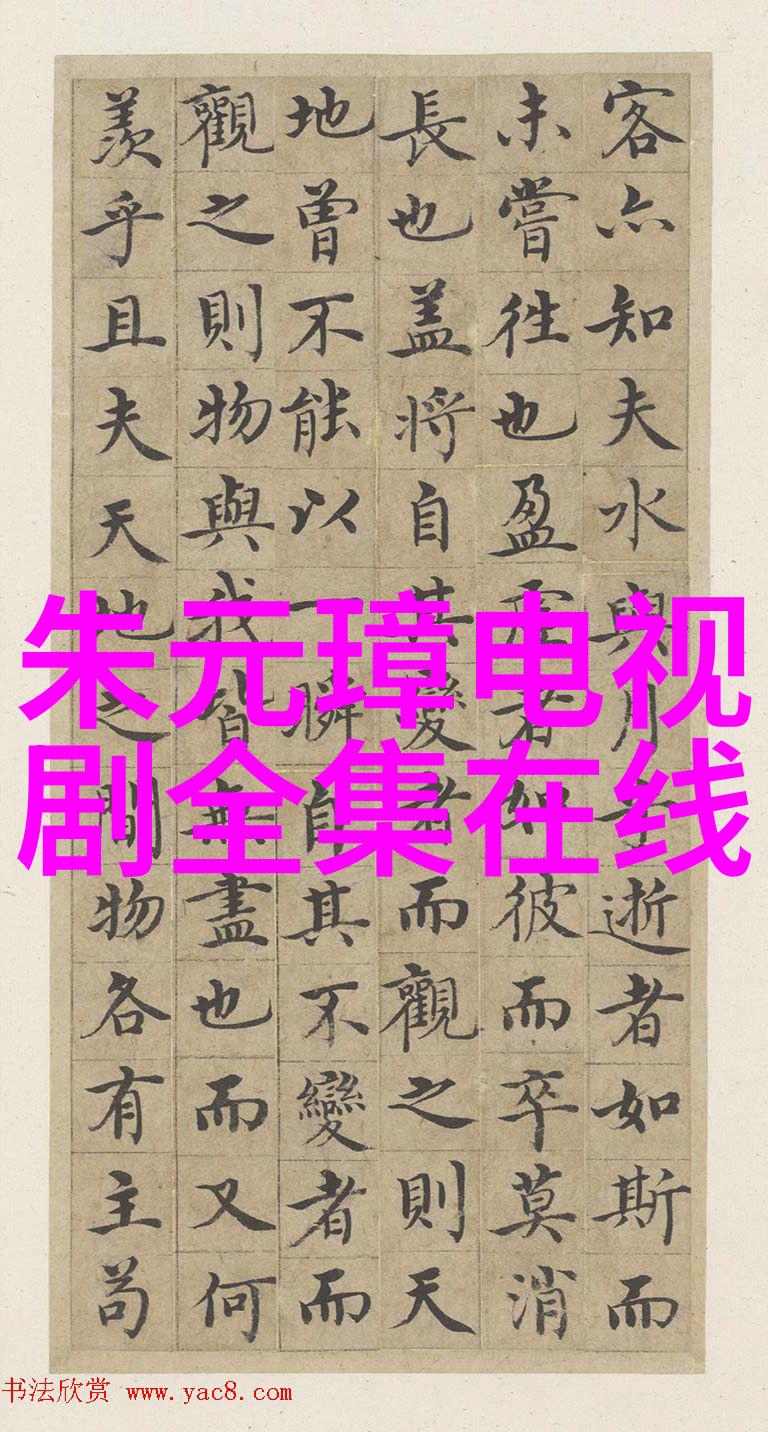 客亦知夫水與月乎逝者如斯而
未嘗往也盈虚者如彼而卒莫消
長也盖將自其變者而觀之則天
地曾不能以一瞬自其不變者而
觀之則物與我皆無盡也而又何
羨乎且夫天地之間物各有主苟
朱元璋电视
剧全集在线
书法欣赏 www.yac8.com